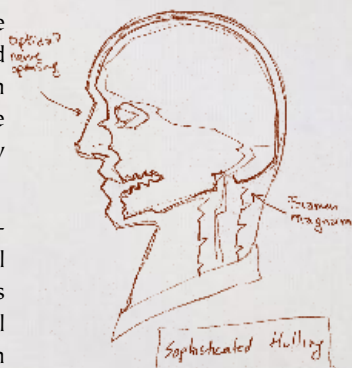 e
d
n
e
y
-
l
s
l
n
optics?
nerve
opening
Framun
magnum
Sophisticated Hulling